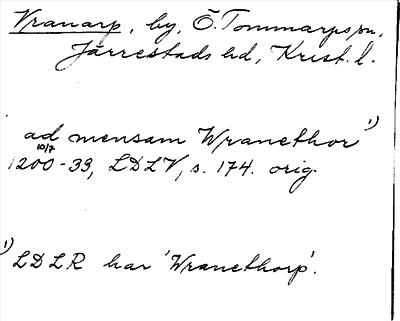 Vranarp, by, Ö. Tommarps sn,
Järrestads hd, Krist. l.
ad mensam Wranethor 1)
10/7
1200-33, LDLV, s. 174. orig.
1) LDLR har 'Wranethorp'.